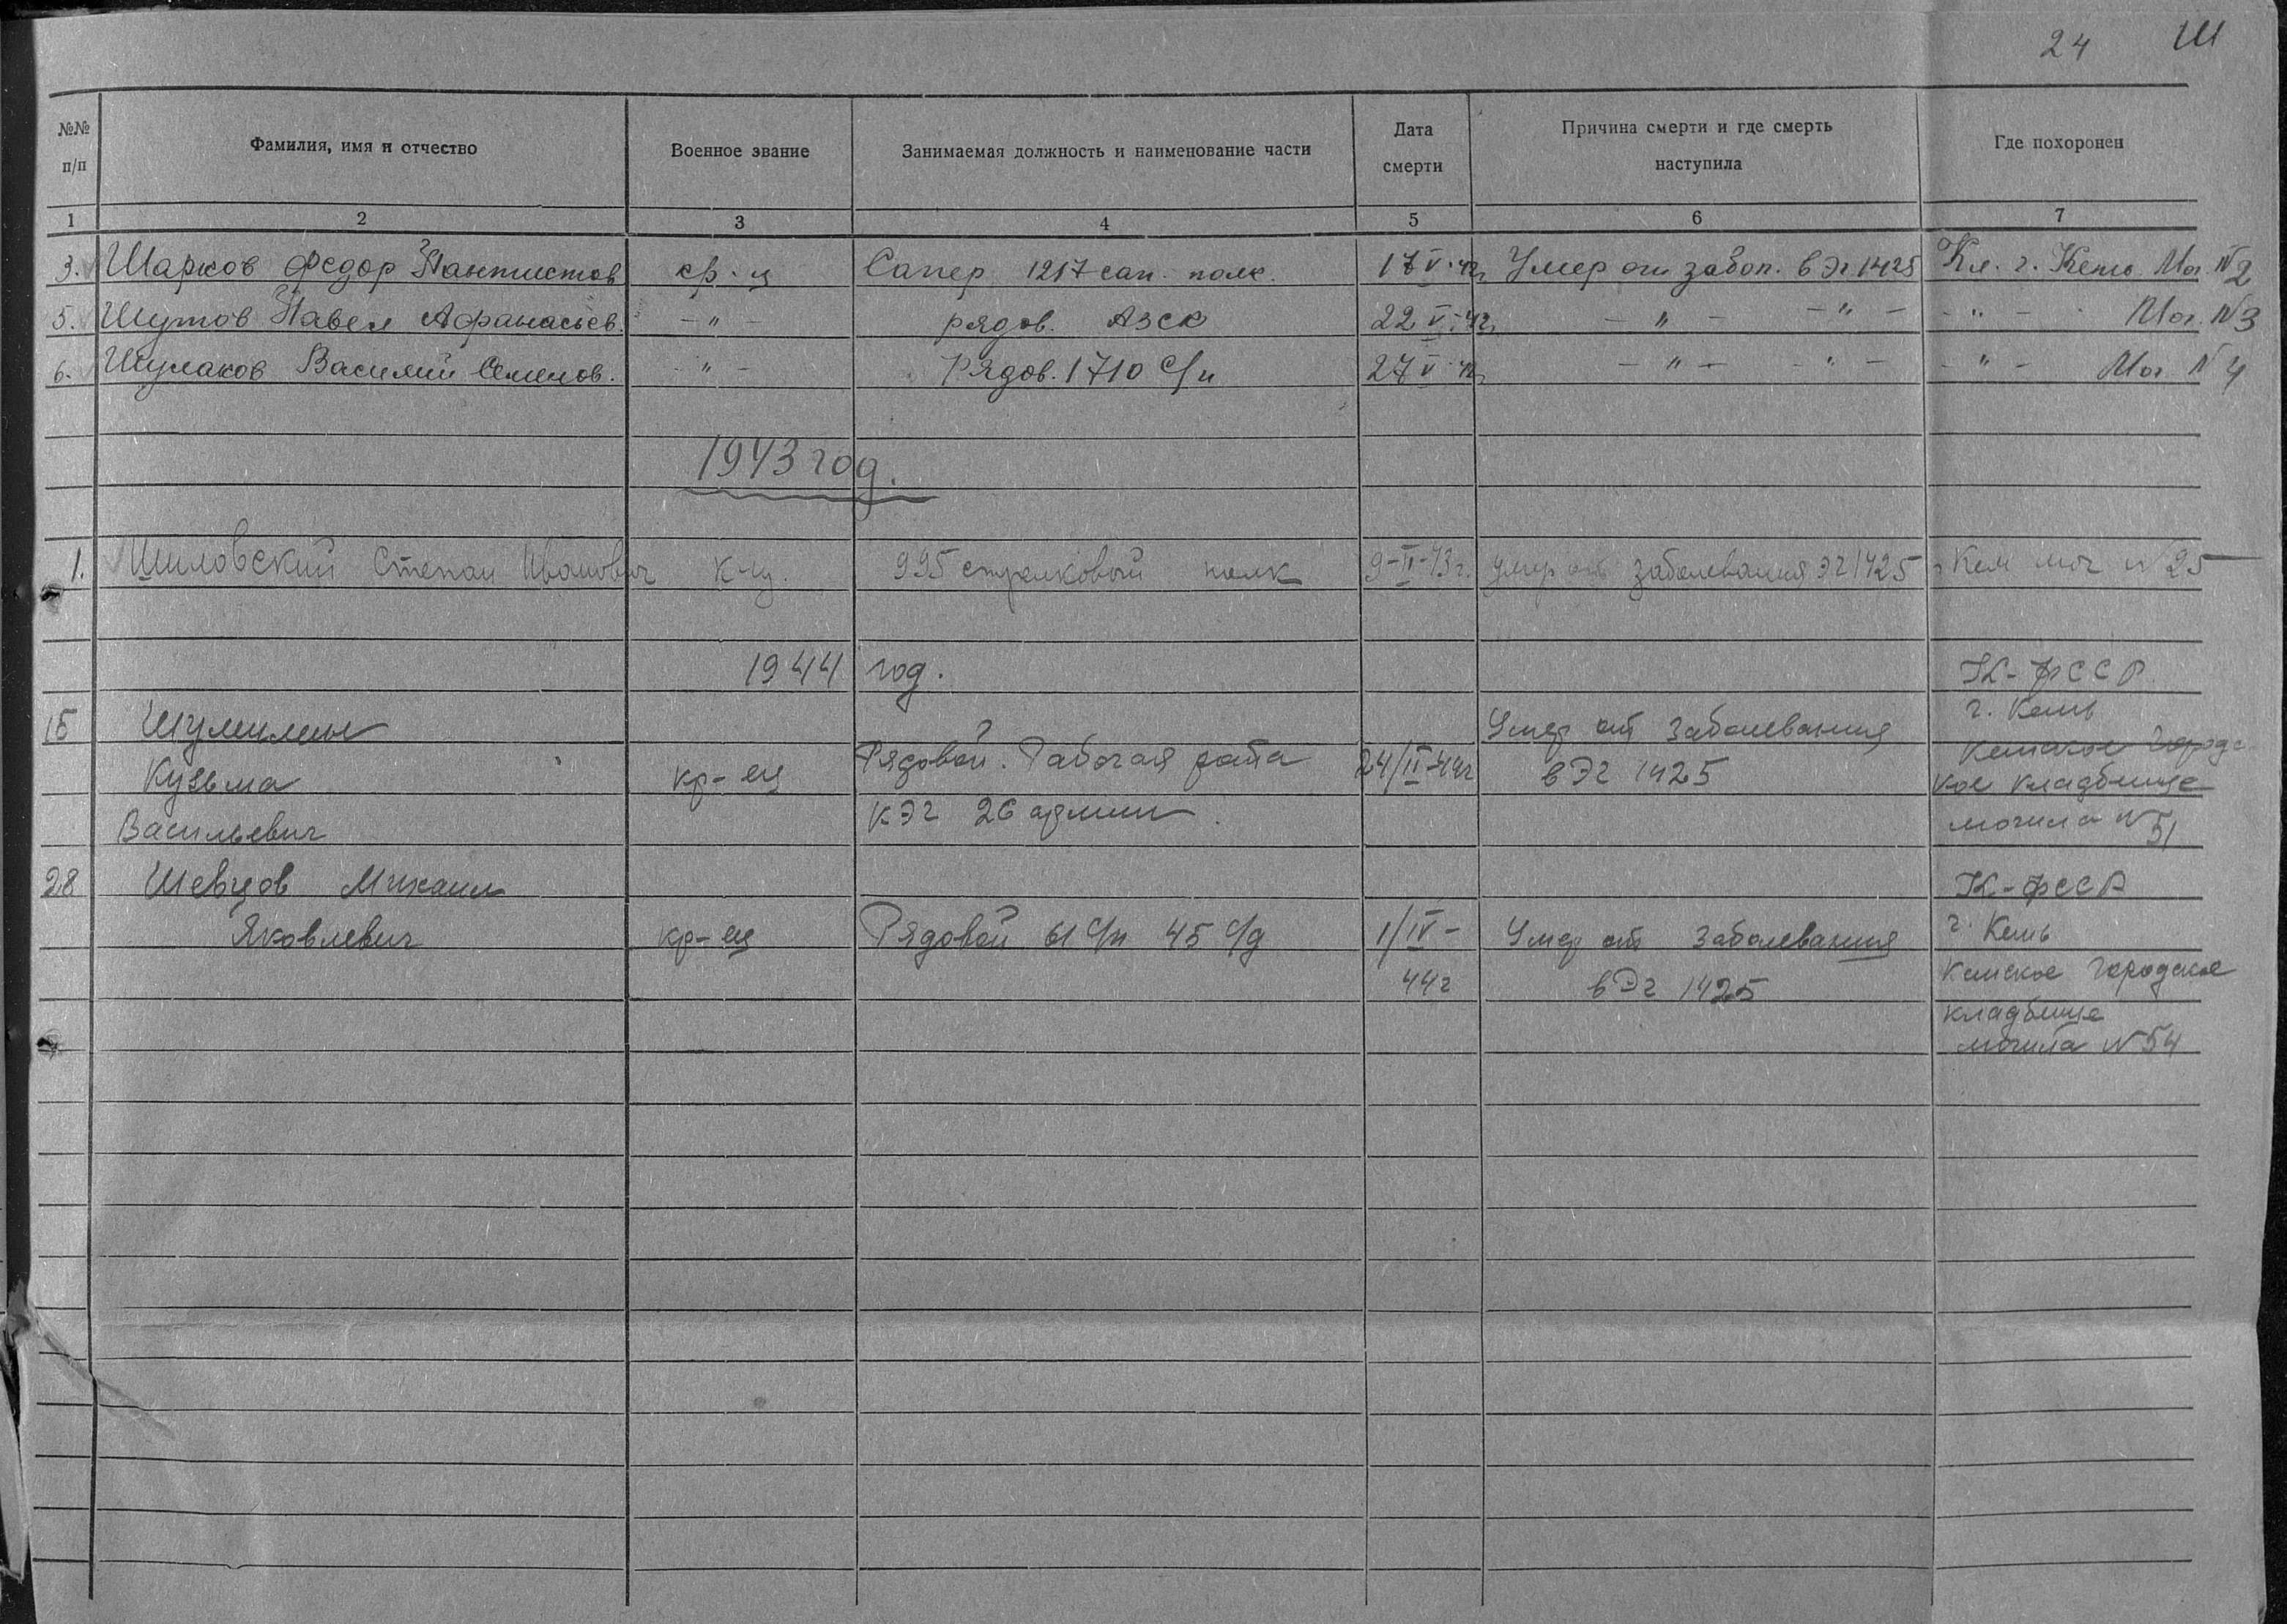 24 Ш
№№ п/п
Фамилия, имя и отчество
Военное звание
Занимаемая должность и наименование части
Дата смерти
Причина смерти и где смерть наступила
Где похоронен
1 2 3 4 5 6 7
3. Шарков Федор кр-ц Сапер 1217 сап. полк. 17 V 42г Умер от забол. в Эг 1425 Кл. г. Кемь Мог. N2
5. Шутов Павел Афанасьев. -"- рядов. АЗСК 22 V-42г. -"- -"- -"- Мог. N3
6. Шулаков Василий Семенов. -"- Рядов. 1710 с/п 27 V 42г -"- -"- -"- Мог N 4
1943 год.
1. Шиловский Степан Иванович к-ц. 995 стрелковый полк 9-II-43г. умер от заболевания ЭГ 1425 г Кем мог N 25
1944 год.
К-ФССР.
15 Шумилин г. Кемь
Умер от заболевания
Рядовой. Рабочая рота Кемское городс
Кузьма кр-ец 24/II-44г в ЭГ 1425 кое кладбище
КЭЧ 26 армии.
Васильевич могила N 51
28 Шевцов Михаил К-ФССР
Яковлевич кр-ец Рядовой 61 с/п 45 с/д 1/IV- Умер от заболевания г. Кемь
44г в ЭГ 1425 Кемское городское
кладбище
могила N 54